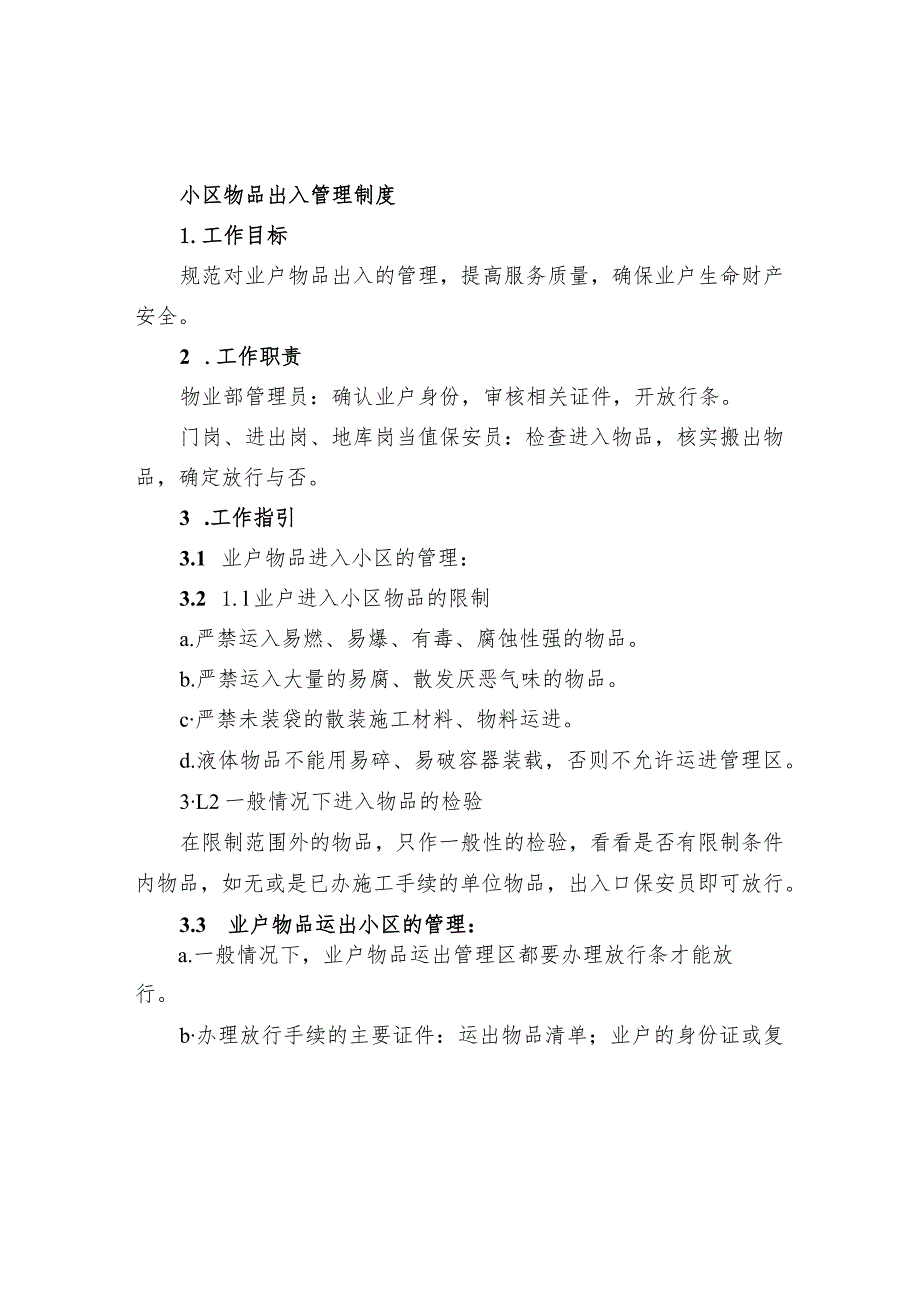 小区物品出入管理制度
1.工作目标
规范对业户物品出入的管理，提高服务质量，确保业户生命财产
安全。
2 .工作职责
物业部管理员：确认业户身份，审核相关证件，开放行条。
门岗、进出岗、地库岗当值保安员：检查进入物品，核实搬出物
品，确定放行与否。
3 .工作指引
3.1 业户物品进入小区的管理：
3.2 1.1业户进入小区物品的限制
a.严禁运入易燃、易爆、有毒、腐蚀性强的物品。
b.严禁运入大量的易腐、散发厌恶气味的物品。
c·严禁未装袋的散装施工材料、物料运进。
d.液体物品不能用易碎、易破容器装载，否则不允许运进管理区。
3·L2一般情况下进入物品的检验
在限制范围外的物品，只作一般性的检验，看看是否有限制条件
内物品，如无或是已办施工手续的单位物品，出入口保安员即可放行。
3.3 业户物品运出小区的管理：
a.一般情况下，业户物品运出管理区都要办理放行条才能放
行。
b·办理放行手续的主要证件：运出物品清单；业户的身份证或复